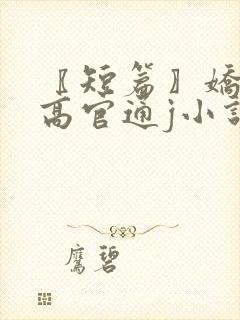 〖短篇〗嬌
高官通j小說
鷹碧